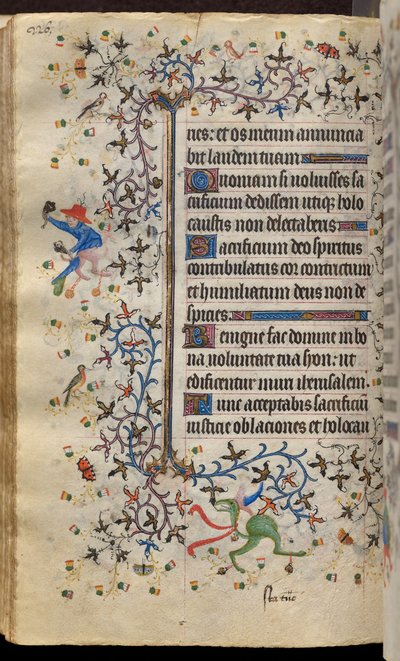 226.
ries: et os meum annuncia
bit laudem tuam
Quoniam si voluisses sa
crificium dedissem utiqz holo
caustis non delectaberis
Sacrificium deo spiritus
contribulatus cor contritum
et humiliatum deus non de
spicies.
Benigne fac domine in bo
na voluntate tua syon: ut
edificentur muri iherusalem.
Tunc acceptabis sacrificiū
iusticie oblaciones et holocau